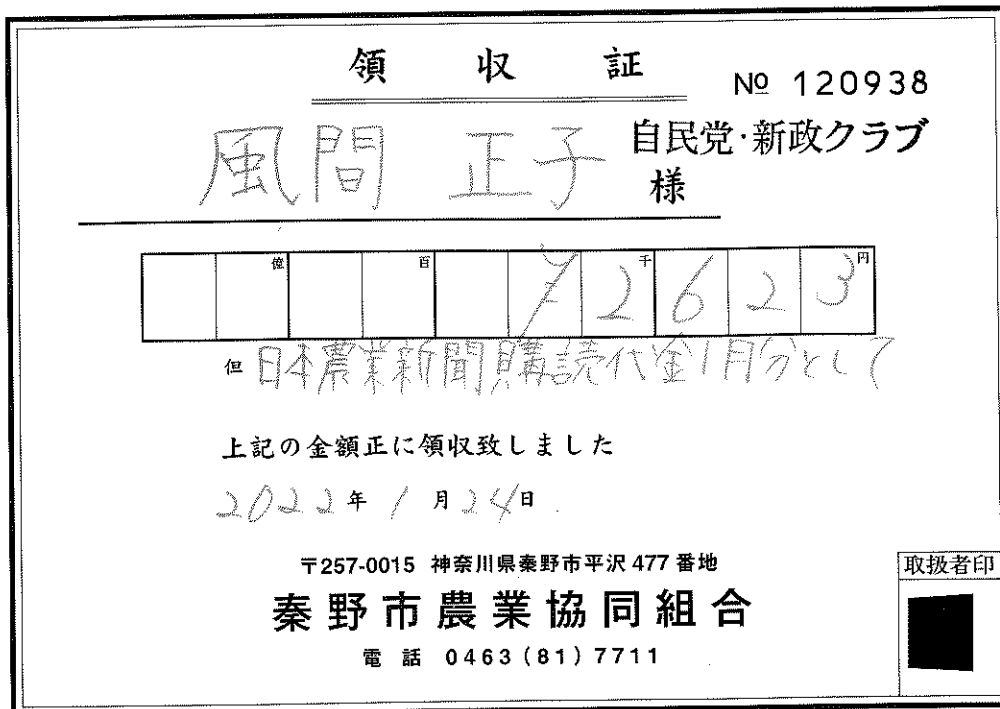 領収証
№ 120938
風間 正子 自民党・新政クラブ 様
億 百 千 円
¥2623
但 日本農業新聞購読代金1月分として
上記の金額正に領収致しました
2022年1月24日
〒257-0015 神奈川県秦野市平沢 477 番地
秦野市農業協同組合
電話 0463(81)7711
取扱者印